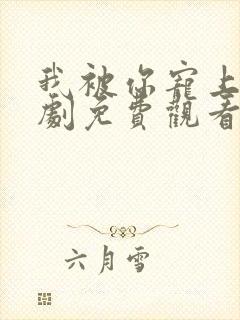 我被你寵上
劇免費觀看
六月雪